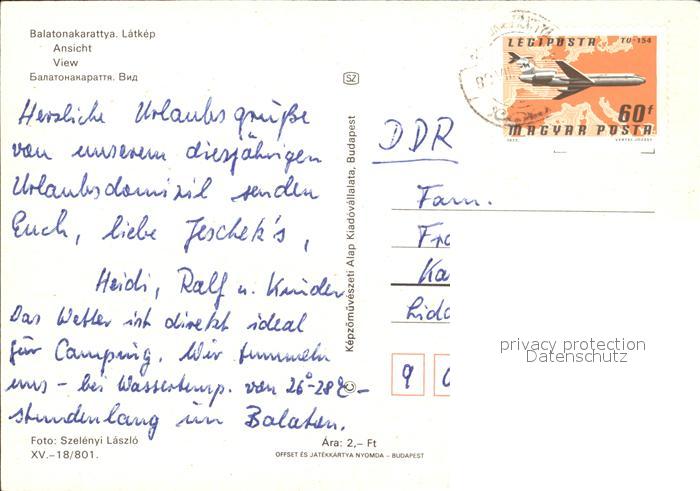 Balatonakarattya. Látkép
Ansicht
View
Балатонакараття. Вид
Herzliche Urlaubsgrüße
von unserem diesjährigen
Urlaubsdomizil senden
Euch, liebe Jeschek's,
Heidi, Ralf u. Kinder
Das Wetter ist direkt ideal
für Camping. Wir tummeln
uns - bei Wassertemp. von 26°-28°C -
stundenlang im Balaton.
Foto: Szelényi László
XV.-18/801.
Ára: 2,- Ft
OFFSET ÉS JÁTÉKKÁRTYA NYOMDA - BUDAPEST
SZ
Képzőművészeti Alap Kiadóvállalata, Budapest
©
LÉGIPOSTA TU-154
60f
MAGYAR POSTA
DDR
Fam.
Fr
Ka
Lido
9
privacy protection
Datenschutz